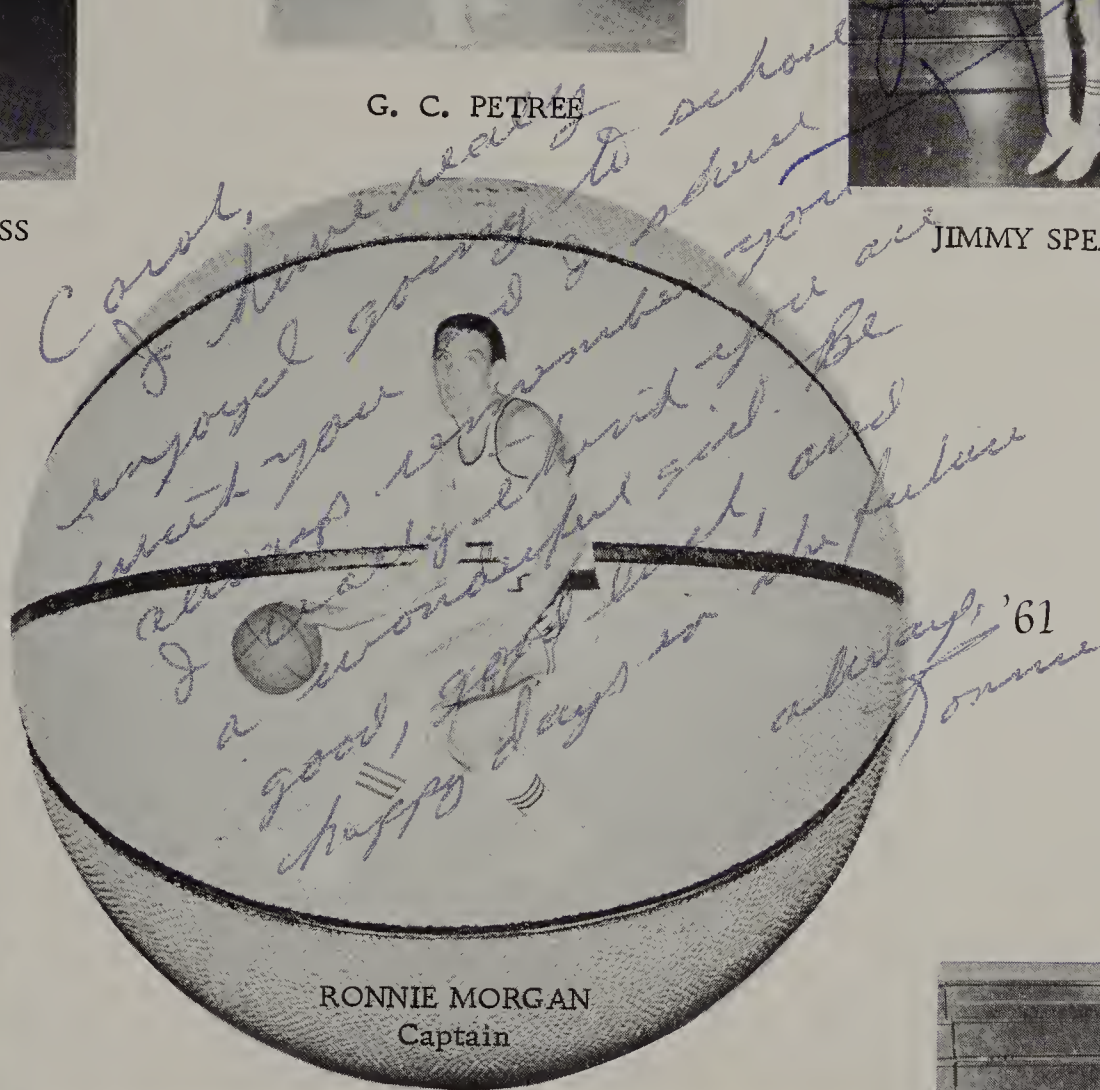 G. C. PETREE
SS
JIMMY SPE
Carol,
I have really
enjoyed going to school
with you and I shall
always remember you.
I really think you are
a wonderful girl. Be
good, good luck, and
happy days in the future
always,
Ronnie
'61
RONNIE MORGAN
Captain